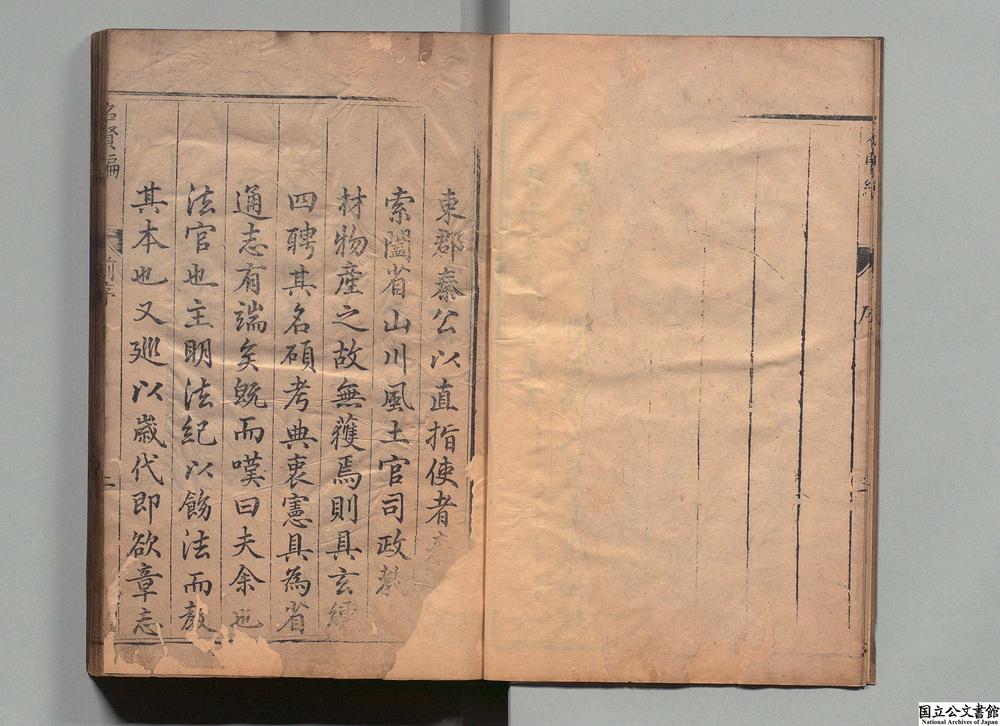 東郡秦公以直指使者
索闔省山川風土官司政教
材物產之故無獲焉則具玄纁
四聘其名碩考典衷憲具為省
通志有端矣既而嘆曰夫余也
法官也主明法紀以飭法而敎
其本也又廵以歲代即欲章志
名賢編
前序
二
序
国立公文書館
National Archives of Japan